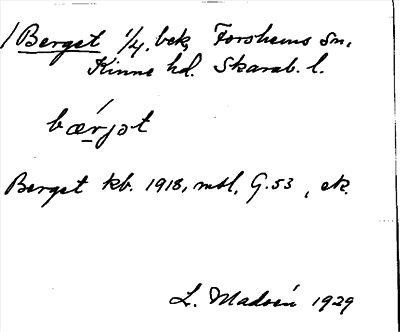 / Berget 1/4, bek, Forshems sn,
Kinne hd. Skarab. l.
bǽrjət
Berget kb. 1918, mtl, G.53, ek.
L. Madsén 1929